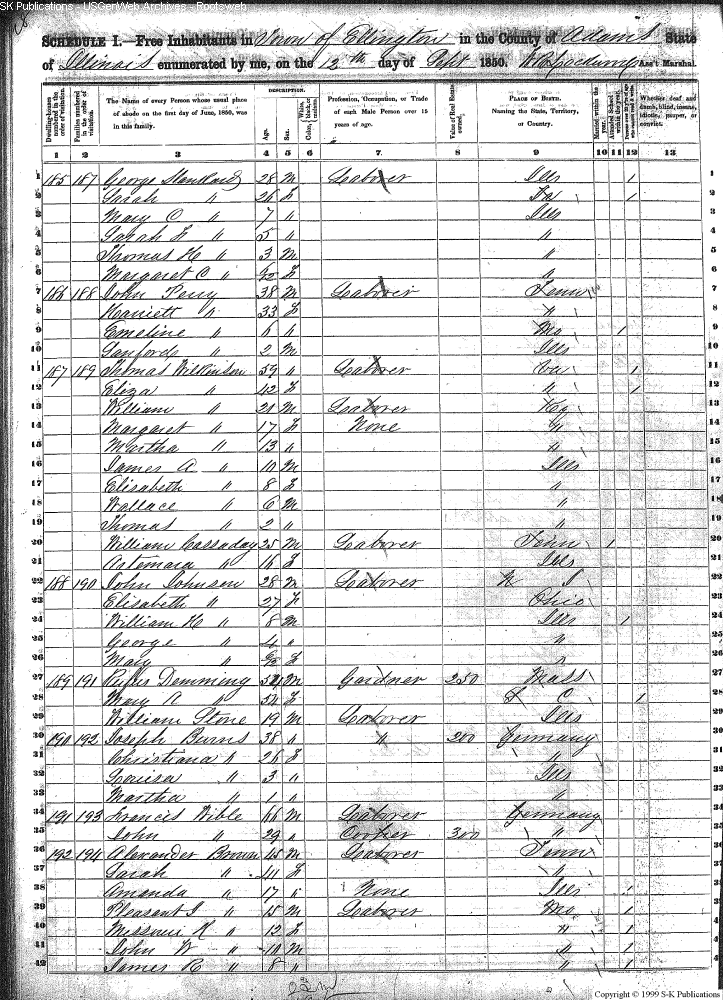 SK Publications - USGenWeb Archives - Rootsweb
SCHEDULE I.—Free Inhabitants in Town of Ellington in the County of Adams State
of Illinois enumerated by me, on the 12th day of Sept 1850. Ass't Marshal.
Dwelling-houses numbered in the order of visitation. Families numbered in the order of visitation. The Name of every Person whose usual place of abode on the first day of June, 1850, was in this family. DESCRIPTION. Age. Sex. White, black, or mulatto. Color Profession, Occupation, or Trade of each Male Person over 15 years of age. Value of Real Estate owned. PLACE OF BIRTH. Naming the State, Territory, or Country. Married within the year. Attended School within the year. Persons over 20 y'rs of age who cannot read & write. Whether deaf and dumb, blind, insane, idiotic, pauper, or convict.
1 2 3 4 5 6 7 8 9 10 11 12 13
1 185 187 George 28 M Laborer Ills / 1
2 Sarah " 26 F / 2
3 Mary C " 7 " Ills 3
4 Sarah F " 5 " " 4
5 Thomas H " 3 M " 5
6 Margaret C " F " 6
7 186 188 John Perry 38 M Laborer Tenn 7
8 Harriett " 33 F " 8
9 Emeline " 6 " Mo / 9
10 Sanford " 2 M Ills 10
11 187 189 Thomas Wilkinson 59 " Laborer Va / 11
12 Eliza " 42 F " / 12
13 William " 21 M Laborer Ky 13
14 Margaret " 17 F None " 14
15 Martha " 13 " " 15
16 James A " 10 M Ills 16
17 Elisabeth " 8 F " 17
18 Wallace " 6 M " 18
19 Thomas " 2 " " 19
20 William Cassaday 25 M Laborer Tenn / 20
21 Artemara " 16 F Ills 21
22 188 190 John Johnson 28 M Laborer N J 22
23 Elisabeth " 27 F Ohio 23
24 William H " 8 M Ills / 24
25 George " 4 " " 25
26 Mary " F " 26
27 189 191 Rufus Demming M Gardner 250 Mass 27
28 Mary A " 54 F S C / 28
29 William Stone 19 M Laborer Ills 29
30 190 192 Joseph Burns 38 " " 200 Germany 30
31 Christiana " 26 F " 31
32 Louisa " 3 " Ills 32
33 Martha " 1 " " 33
34 191 193 Francis Wible 66 M Laborer Germany 34
35 John " 29 " Cooper 300 " 35
36 192 194 Alexander Brown 45 M Laborer Tenn 36
37 Sarah " 41 F " 37
38 Amanda " 17 " None Ills / 38
39 Pleasant J " 15 M Laborer Mo / 39
40 Missouri K " 12 F " / 40
41 John W " 10 M " / 41
42 James R " 8 " " / 42
Copyright © 1999 S-K Publications